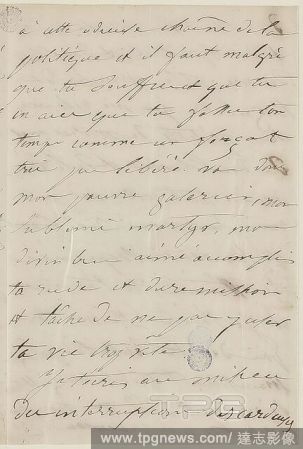 à cette odieuse chaîne de la
politique et il faut malgré
que tu souffres et que tu
en aies que tu fasses ton
temps comme un forçat
libéré. va donc
mon pauvre galérien, mon
sublime martyr, mon
divin bien aimé accomplis
ta rude et dure mission
et tâche de ne pas user
ta vie trop vite.
du interruptions
TPG
www.tpgnews.com/達志影像